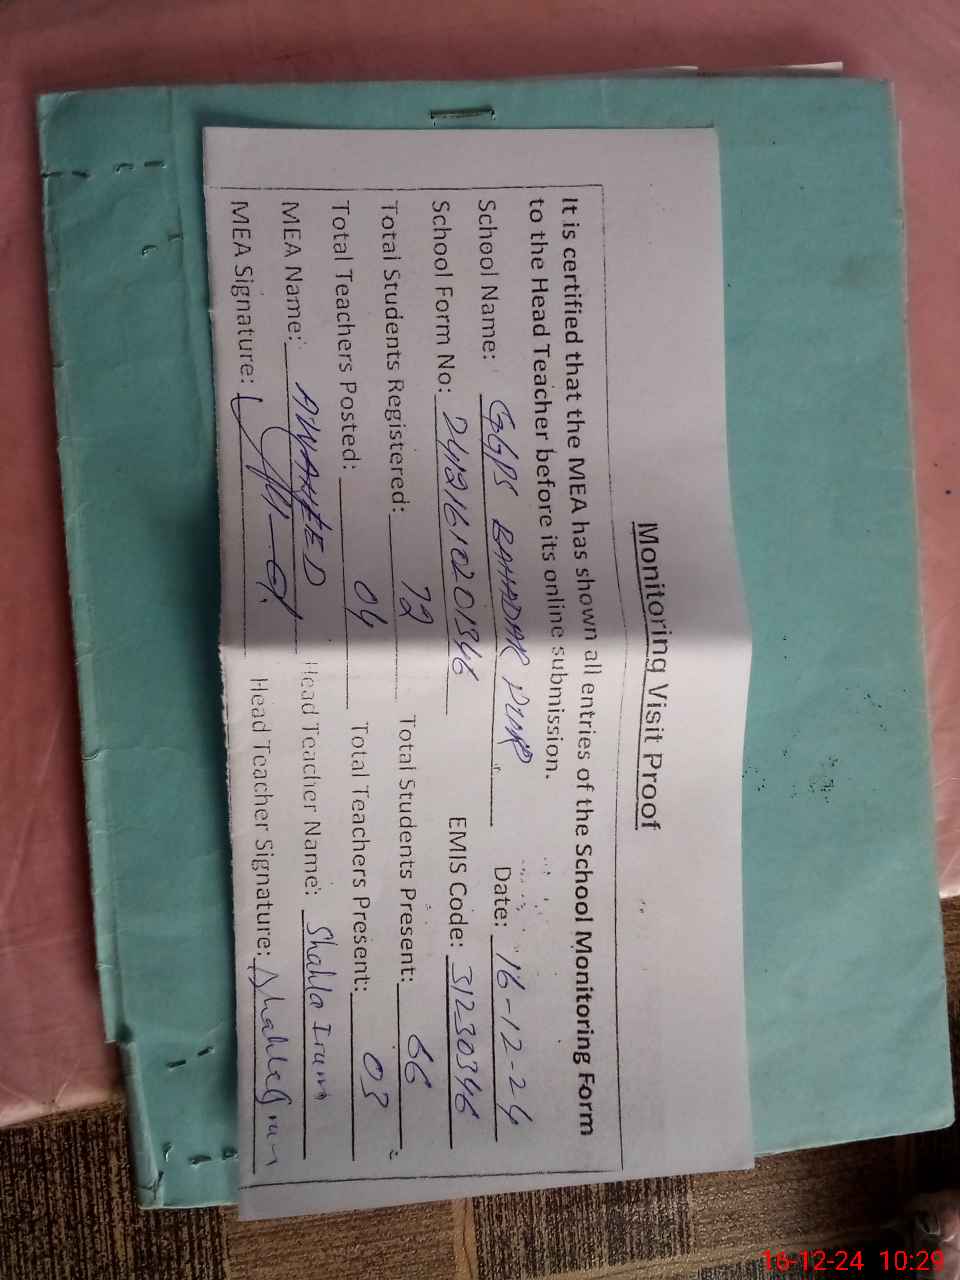 Monitoring Visit Proof
It is certified that the MEA has shown all entries of the School Monitoring Form
to the Head Teacher before its online submission.
School Name: GGPS BAHADAR PUR Date: 16-12-24
School Form No: 24121610201346 EMIS Code: 31230346
Total Students Registered: 72 Total Students Present: 66
Total Teachers Posted: 04 Total Teachers Present: 03
MEA Name: Head Teacher Name: Shahla Iram
MEA Signature: Head Teacher Signature: Shahla Iram
16-12-24 10:29